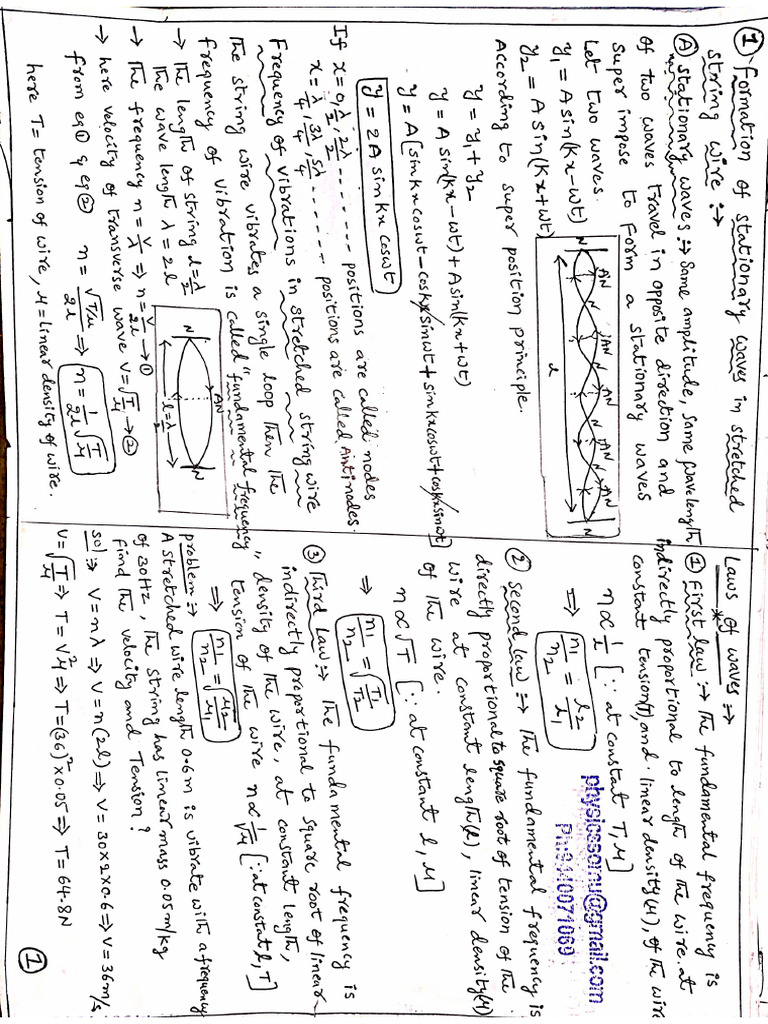 ① Formation of stationary waves in stretched
string wire :→
Ⓐ stationary waves :→ Same amplitude, same wavelength
of two waves travel in opposite direction and
super impose to form a stationary waves
Let two waves.
y₁ = A sin(Kx-wt)
y₂ = A sin(Kx+wt)
N AN N AN N AN N AN N
l
According to super position principle.
y = y₁ + y₂
y = A sin(Kx-wt) + A sin(Kx+wt)
y = A[sinkx coswt - coskx sinwt + sinkx coswt + coskx sinwt]
y = 2A sinkx coswt
If x = 0, λ/2, 2λ/2 ------- positions are called nodes
x = λ/4, 3λ/4, 5λ/4 ------- positions are called Antinodes.
Frequency of vibrations in stretched string wire
The string wire vibrates a single loop then the
frequency of vibration is called "fundamental frequency"
→ The length of string l = λ/2
the wave length λ = 2l
→ The frequency n = v/λ ⇒ n = v/2l →①
→ here velocity of transverse wave V = √T/μ →②
from eq① & eq② n = √T/μ/2l ⇒ n = 1/2l √T/μ
here T = tension of wire, μ = linear density of wire.
N AN N
l = λ/2
Laws of waves :→
① First law :→ The fundamental frequency is
indirectly proportional to length of the wire. at
constant tension(T), and linear density(μ), of the wire
n ∝ 1/l [∵ at constat T, μ]
⇒ n₁/n₂ = l₂/l₁
physicssomu@gmail.com
② Second law :→ The fundamental frequency is
directly proportional to square root of tension of the
wire at constant length(l), linear density(μ)
of the wire.
n ∝ √T [∵ at constant l, μ]
⇒ n₁/n₂ = √T₁/T₂
③ Third law :→ The fundamental frequency is
indirectly proportional to square root of linear
density of the wire, at constant length,
tension of the wire n ∝ 1/√μ [∵ at constat l, T]
⇒ n₁/n₂ = √μ₂/μ₁
problem :→
A stretched wire length 0.6m is vibrate with a frequency
of 30Hz, the string has linear mass 0.05m/kg
find the velocity and Tension?
sol :→ V = nλ ⇒ V = n(2l) ⇒ V = 30×2×0.6 ⇒ V = 36m/s.
V = √T/μ ⇒ T = V²μ ⇒ T = (36)² × 0.05 ⇒ T = 64.8N
①